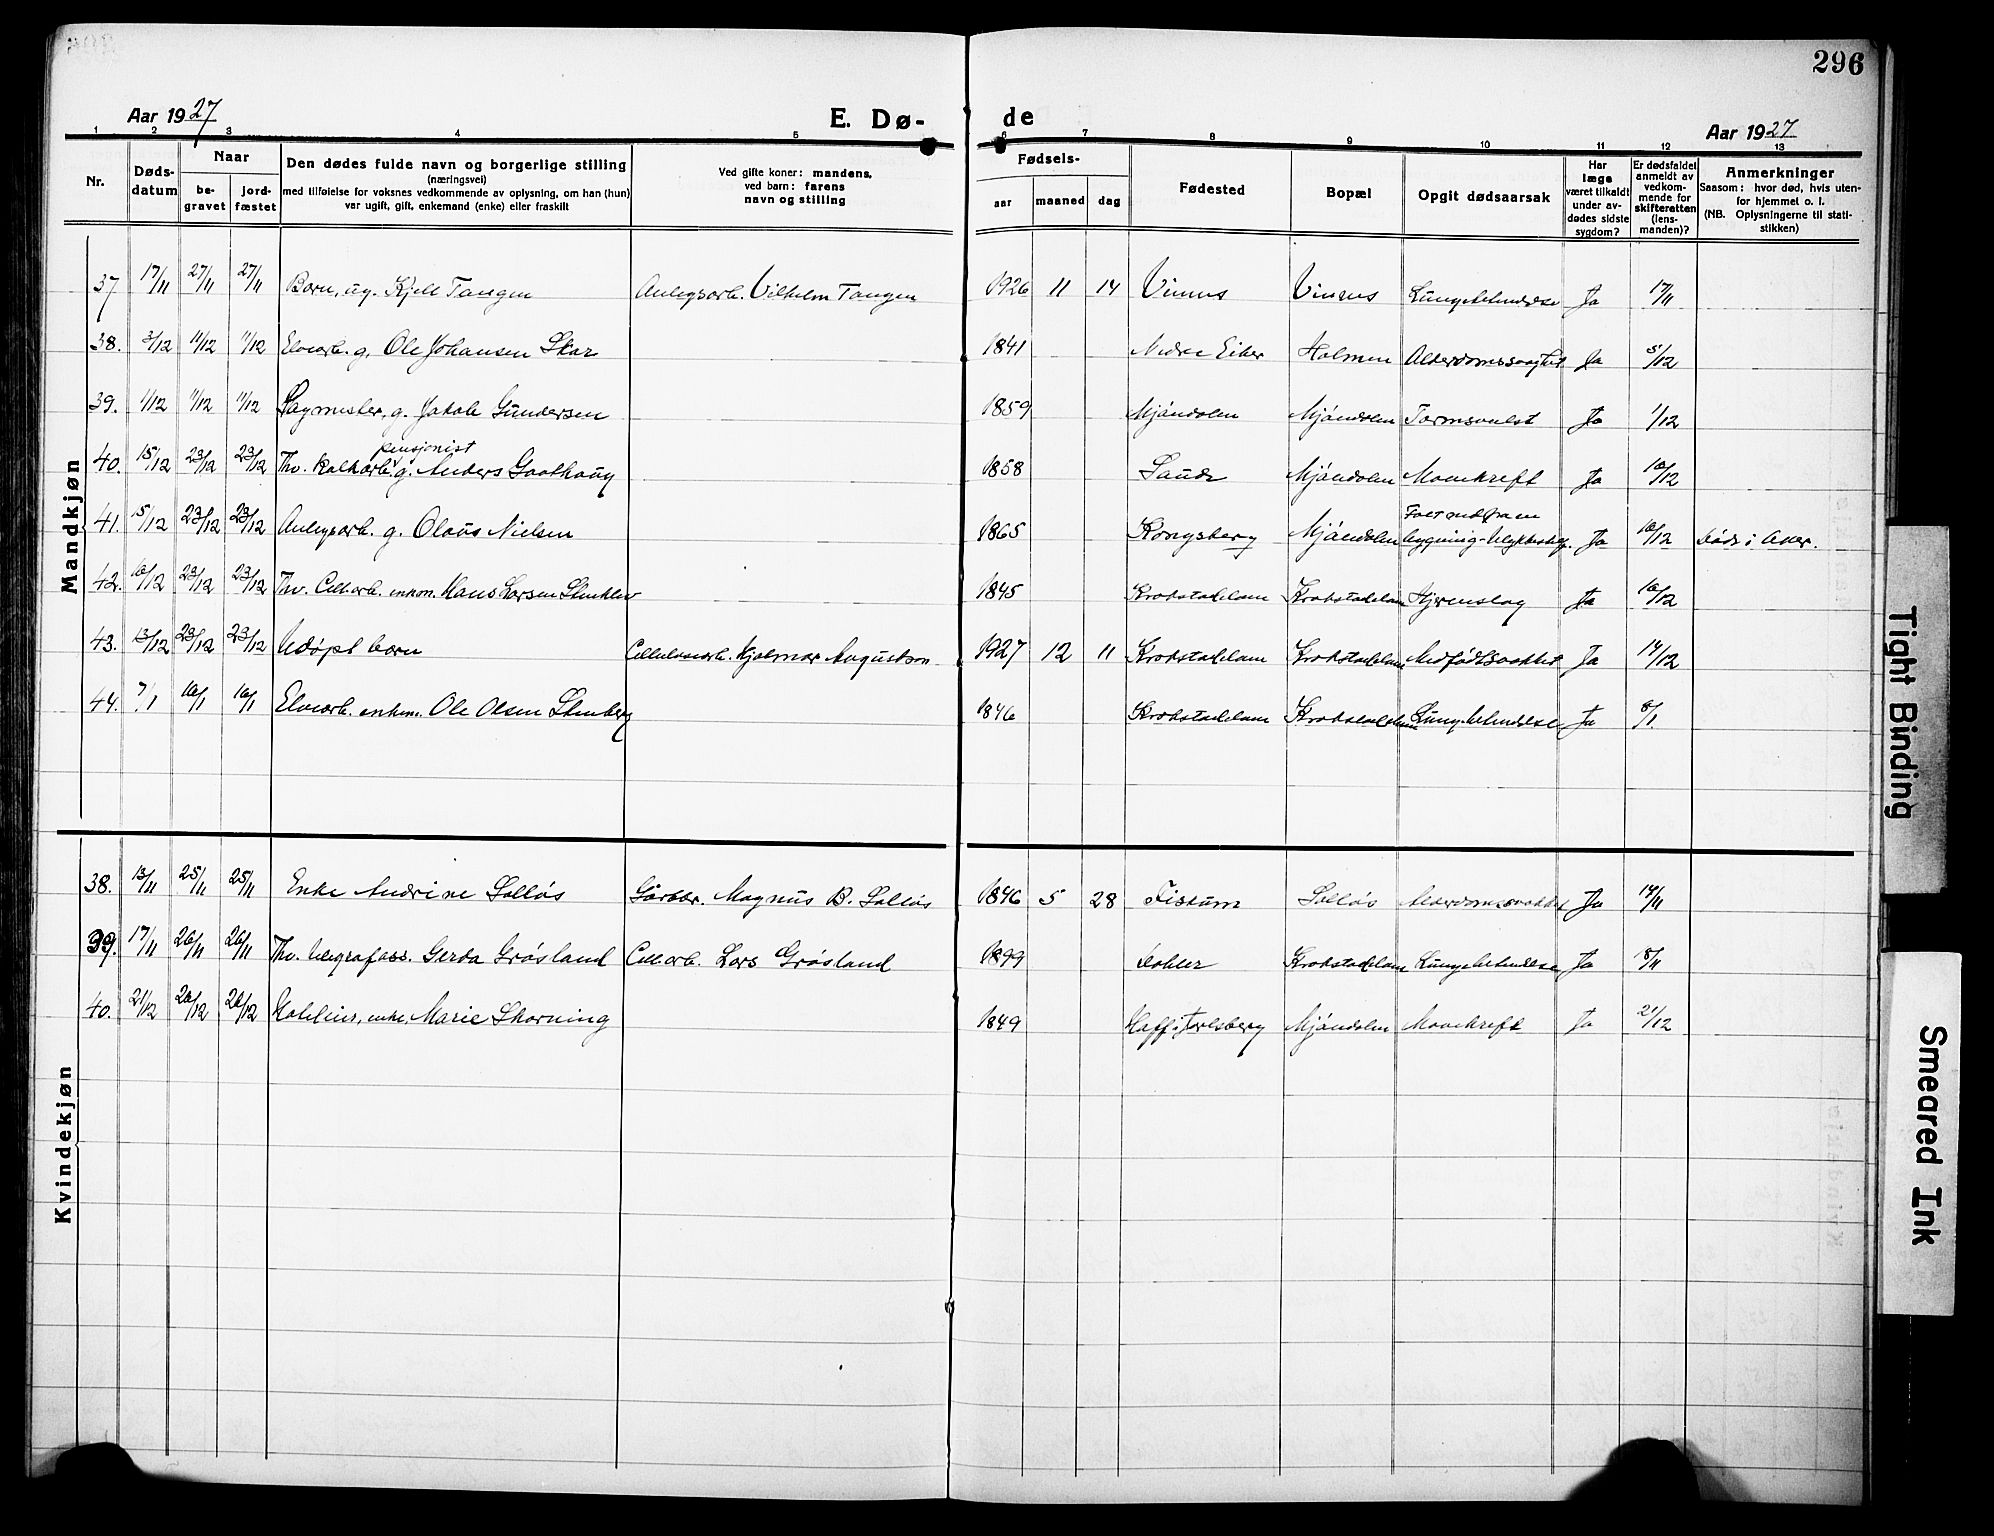 296
Aar 1927
E. Dø-
de
Aar 1927
1 2 3 4 5 6 7 8 9 10 11 12 13
Nr.
Døds-
datum
Naar
be-
gravet
jord-
fæstet
Den dødes fulde navn og borgerlige stilling
(næringsvei)
med tilføielse for voksnes vedkommende av oplysning, om han (hun)
var ugift, gift, enkemand (enke) eller fraskilt
Ved gifte koner: mandens,
ved barn: farens
navn og stilling
Fødsels-
aar maaned dag
Fødested
Bopæl
Opgit dødsaarsak
Har
læge
været tilkaldt
under av-
dødes sidste
sygdom?
Er dødsfaldet
anmeldt av
vedkom-
mende for
skifteretten
(lens-
manden)?
Anmerkninger
Saasom: hvor død, hvis uten-
for hjemmet o. l.
(NB. Oplysningerne til stati-
stikken)
Mandkjøn
37 17/11 27/11 27/11 Barn, ug. Kjell Tangen Anlegsarb. Vilhelm Tangen 1926 11 14 Vinnes Vinnes Lungebetendelse Ja 17/11
38. 3/12 11/12 11/12 Elvearb. g. Ole Johansen Skar 1841 Nedre Eiker Holmen Alderdomssvaghet Ja 5/12
39. 1/12 11/12 11/12 Sagmester, g. Jakob Gundersen 1859 Mjøndalen Mjøndalen Tarmsvulst Ja 1/12
pensjonist
40. 15/12 23/12 23/12 Fhv. g. Anders Gaathaug 1858 Saude Mjøndalen Mavekreft Ja 16/12
41. 15/12 23/12 23/12 Anlegsarb. g. Olaus Nielsen 1865 Kongsberg Mjøndalen Ja 16/12 døde i Aker.
42. 16/12 23/12 23/12 Fhv. Cell.arb. enkem. Hans Larsen 1845 Krokstadelven Krokstadelven Hjerneslag Ja 16/12
43. 13/12 23/12 23/12 Udøpt barn Cellulosearb. Hjalmar Augustson 1927 12 11 Krokstadelven Krokstadelven Medfødt svakhet Ja 14/12
44. 7/1 16/1 16/1 Elvearb. enkem. Ole Olsen Stenberg 1846 Krokstadelven Krokstadelven Lungebetendelse Ja 8/1
Kvindekjøn
38. 13/11 25/11 25/11 Enke Andrine Solløs Gårdbr. Magnus B. Solløs 1846 5 28 Fiskum Solløs Alderdomssvakhet Ja 14/11
39. 17/11 26/11 26/11 Fhv. telegrafass. Gerda Grøsland Cell.arb. Lars Grøsland 1899 Krokstadelven Lungebetendelse Ja 18/11
40. 21/12 26/12 26/12 enke, Marie Skorning 1849 Mjøndalen Mavekreft Ja 21/12
Tight Binding
Smeared Ink